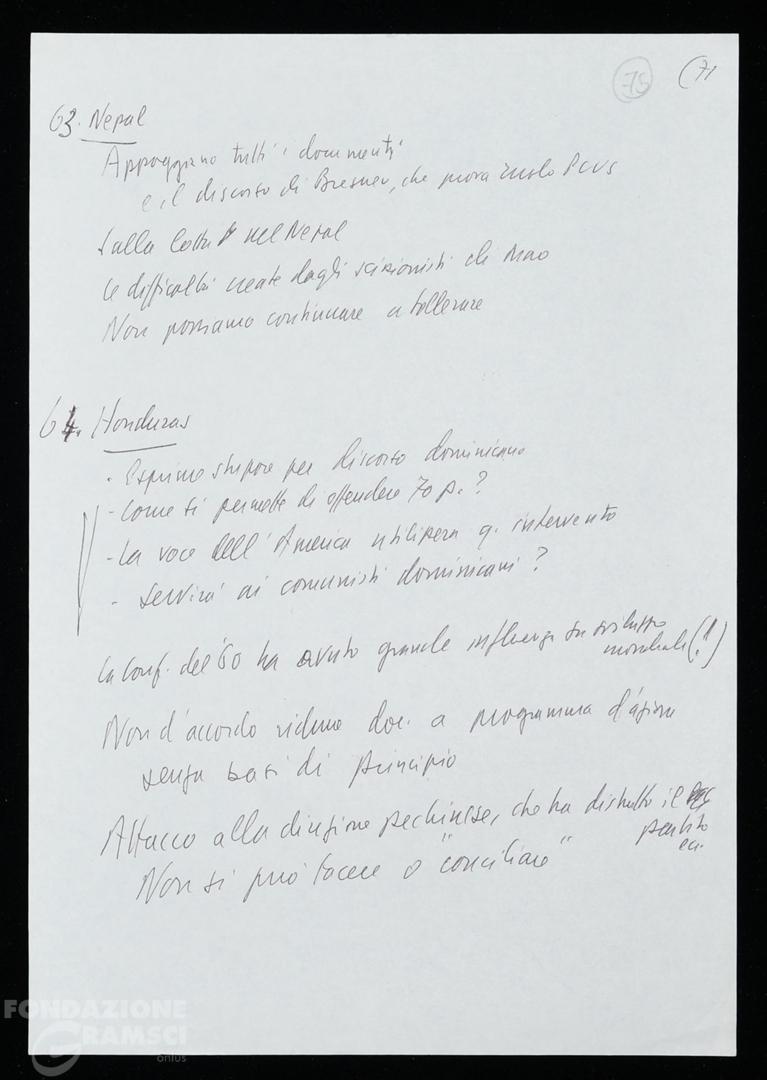 75 (71
63. Nepal
Appoggiano tutti i documenti
e il discorso di Bresnev, che prova ruolo PCUS
Sulla lotta nel Nepal
le difficoltà create dagli scissionisti di Mao
Non possiamo continuare a tollerare
64. Honduras
- Esprime stupore per discorso dominicano
- Come si permette di offendere 70 p. ?
- La voce dell'America utilizzerà q. intervento
- Servirà ai comunisti dominicani ?
La conf. del '60 ha avuto grande influenza su sviluppo
mondiale (!)
Non d'accordo ridurre doc. a programma d'azione
senza basi di principio
Attacco alla direzione pechinese, che ha distrutto il
partito
ecc.
Non si può tacere o "conciliare"
FONDAZIONE
GRAMSCI
onlus